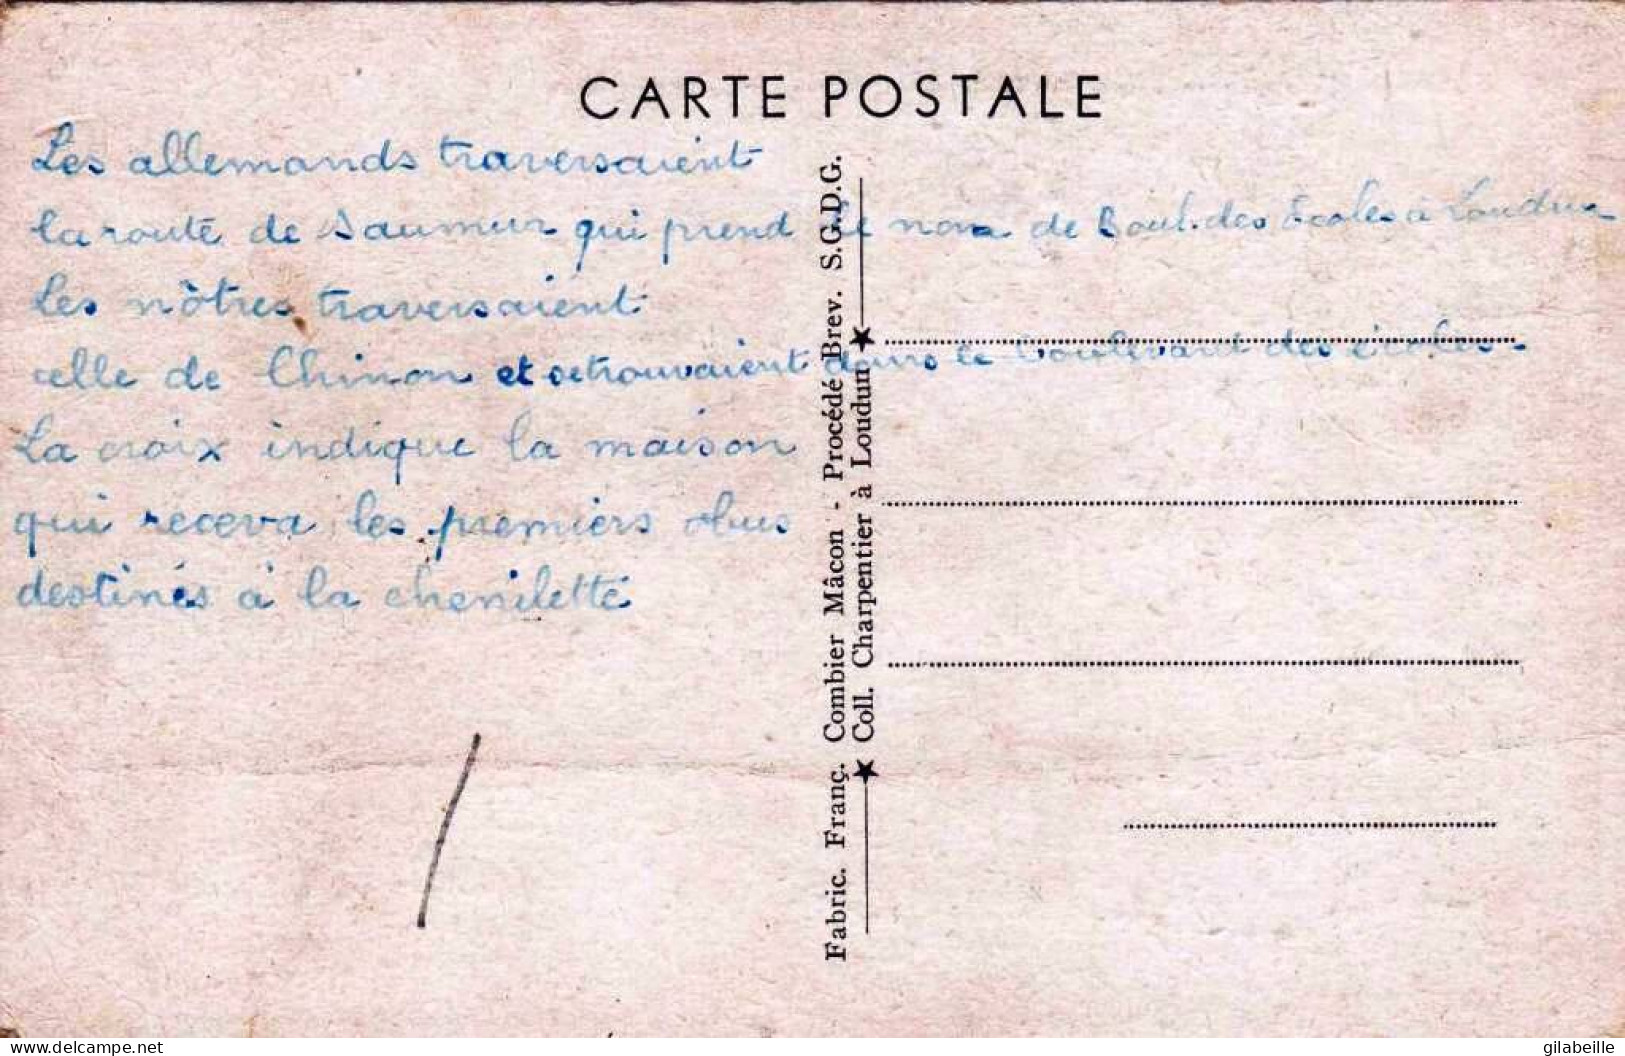 CARTE POSTALE
Les allemands traversaient
la route de Saumur qui prend le nom de Boul. des Écoles à Loudun
les nôtres traversaient
celle de Chinon et se trouvaient dans le boulevard des écoles.
La croix indique la maison
qui receva les premiers obus
destinés à la chenilette
Fabric. Franç. Combier Mâcon - Procédé Brev. S.G.D.G.
★ Coll. Charpentier à Loudun ★
www.delcampe.net
gilabeille